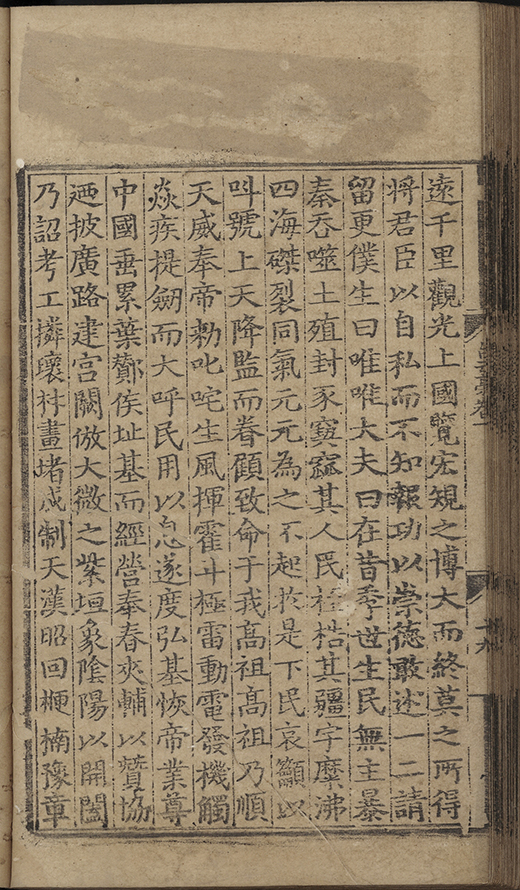 遠千里觀光上國覽宏規之博大而終莫之所得
將君臣以自私而不知報功以崇德敢述一二請
留更僕生曰唯唯大夫曰在昔季世生民無主暴
秦吞噬土殖封豕窫窳其人民桎梏其疆宇麋沸
四海磔裂同氣元元為之不起於是下民哀籲以
呌號上天降監而眷顧致命于我高祖高祖乃順
天威奉帝勑叱咤生風揮霍斗極雷動電發機觸
焱疾提劒而大呼民用以息遂度弘基恢帝業尊
中國垂累葉酇侯址基而經營奉春夾輔以贊協
迺披廣路建宮闕倣大微之紫垣象陰陽以開闔
乃詔考工撛壞畫堵成制天漢昭回楩楠豫章